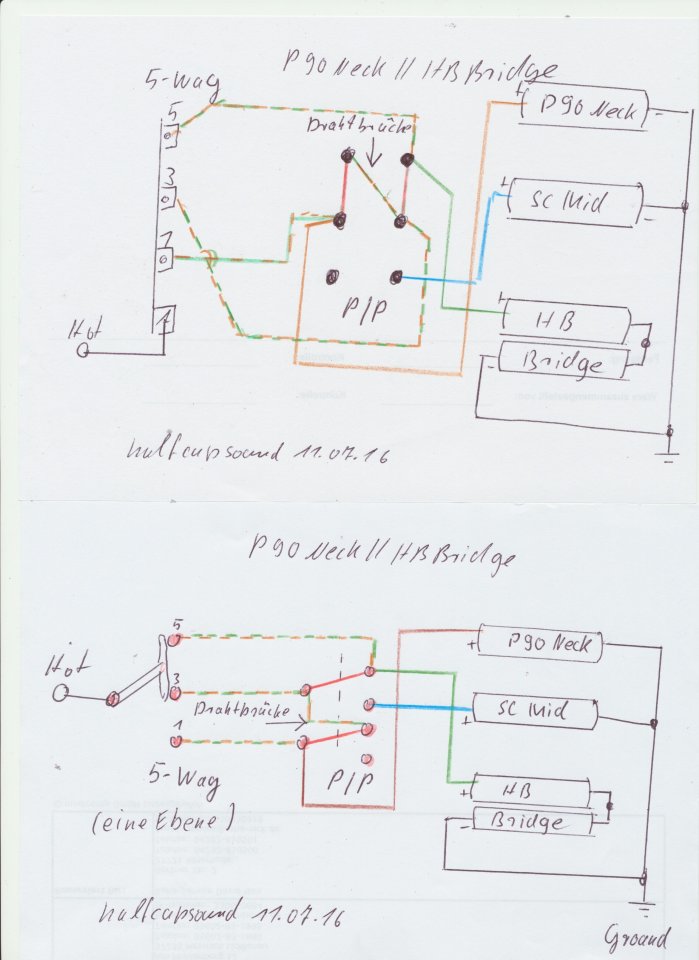 P90 Neck // HB Bridge
5-Way
5
3
1
1
Hot
Drahtbrücke
P/P
+ P90 Neck -
+ SC Mid -
+ HB
- Bridge
halfcapsound 11.07.16
P90 Neck // HB Bridge
Hot
5
3
1
Drahtbrücke
5-Way
(eine Ebene)
P/P
+ P90 Neck
+ SC Mid
+ HB
- Bridge
halfcapsound 11.07.16
Ground